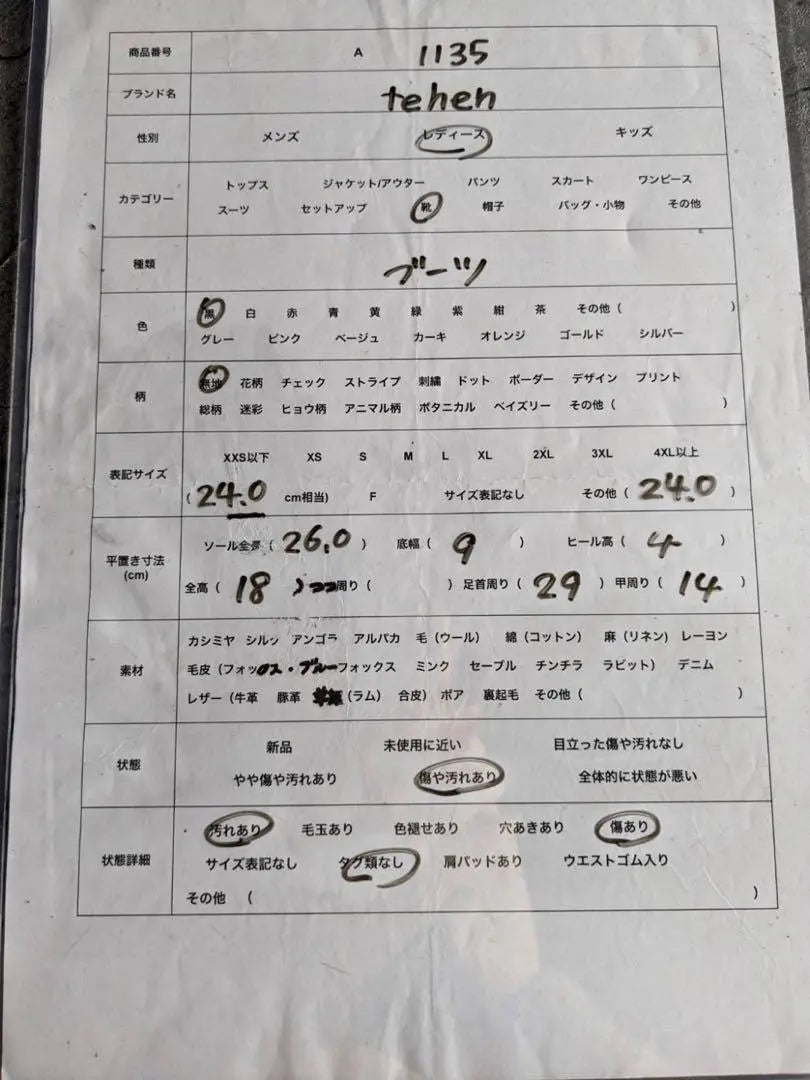 商品番号 A 1135
ブランド名 tehen
性別 メンズ レディース キッズ
カテゴリー トップス ジャケット/アウター パンツ スカート ワンピース
スーツ セットアップ 靴 帽子 バッグ・小物 その他
種類 ブーツ
色 黒 白 赤 青 黄 緑 紫 紺 茶 その他 ( )
グレー ピンク ベージュ カーキ オレンジ ゴールド シルバー
柄 無地 花柄 チェック ストライプ 刺繍 ドット ボーダー デザイン プリント
総柄 迷彩 ヒョウ柄 アニマル柄 ボタニカル ペイズリー その他 ( )
表記サイズ XXS以下 XS S M L XL 2XL 3XL 4XL以上
( 24.0 cm相当) F サイズ表記なし その他 ( 24.0 )
平置き寸法 (cm) ソール全長 ( 26.0 ) 底幅 ( 9 ) ヒール高 ( 4 )
全高 ( 18 ) 周り ( ) 足首周り ( 29 ) 甲周り ( 14 )
素材 カシミヤ シルッ アンゴラ アルパカ 毛 (ウール) 綿 (コットン) 麻 (リネン) レーヨン
毛皮 (フォックス・ブルーフォックス ミンク セーブル チンチラ ラビット) デニム
レザー (牛革 豚革 (ラム) 合皮) ボア 裏起毛 その他 ( )
状態 新品 未使用に近い 目立った傷や汚れなし
やや傷や汚れあり 傷や汚れあり 全体的に状態が悪い
状態詳細 汚れあり 毛玉あり 色褪せあり 穴あきあり 傷あり
サイズ表記なし タグ類なし 肩パッドあり ウエストゴム入り
その他 ( )